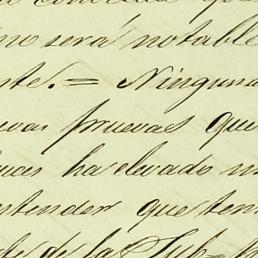 no será notable
nte. = Ninguna
evas pruevas que
ha elevado
ntender que ten
de la Sub